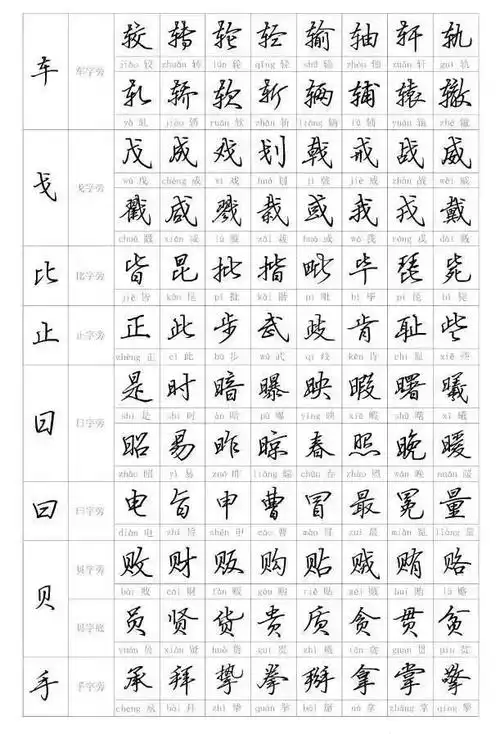 车 车字旁 较 转 轮 轻 输 轴 轩 轨
jiào 较 zhuǎn 转 lún 轮 qīng 轻 shū 输 zhóu 轴 xuān 轩 guǐ 轨
轧 轿 软 斩 辆 辅 辕 辙
yà 轧 jiào 轿 ruǎn 软 zhǎn 斩 liàng 辆 fǔ 辅 yuán 辕 zhé 辙
戈 戈字旁 戊 成 戏 划 戟 戒 战 威
wù 戊 chéng 成 xì 戏 huá 划 jǐ 戟 jiè 戒 zhàn 战 wēi 威
戳 咸 戮 栽 或 我 戎 戴
chuō 戳 xián 咸 lù 戮 zāi 栽 huò 或 wǒ 我 róng 戎 dài 戴
比 比字旁 皆 昆 批 揩 毗 毕 琵 毙
jiē 皆 kūn 昆 pī 批 kāi 揩 pí 毗 bì 毕 pí 琵 bì 毙
止 止字旁 正 此 步 武 歧 肯 耻 些
zhèng 正 cǐ 此 bù 步 wǔ 武 qí 歧 kěn 肯 chǐ 耻 xiē 些
日 日字旁 是 时 暗 曝 映 暇 曙 曦
shì 是 shí 时 àn 暗 pù 曝 yìng 映 xiá 暇 shǔ 曙 xī 曦
昭 易 昨 晾 春 照 晚 暖
zhāo 昭 yì 易 zuó 昨 liàng 晾 chūn 春 zhào 照 wǎn 晚 nuǎn 暖
曰 曰字旁 电 旨 申 曹 冒 最 冕 量
diàn 电 zhǐ 旨 shēn 申 cáo 曹 mào 冒 zuì 最 miǎn 冕 liàng 量
贝 贝字旁 败 财 贩 购 贴 贼 贿 赂
bài 败 cái 财 fàn 贩 gòu 购 tiē 贴 zéi 贼 huì 贿 lù 赂
贝字底 员 贤 货 贵 质 贪 贯 贫
yuán 员 xián 贤 huò 货 guì 贵 zhì 质 tān 贪 guàn 贯 pín 贫
手 手字旁 承 拜 挚 拳 掰 拿 掌 擎
chéng 承 bài 拜 zhì 挚 quán 拳 bāi 掰 ná 拿 zhǎng 掌 qíng 擎